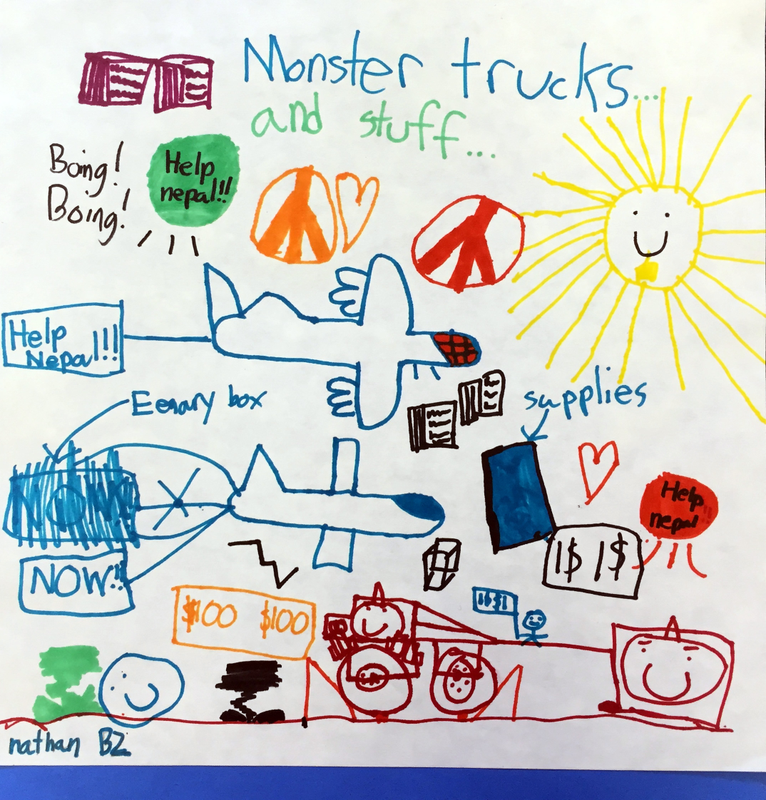 Monster trucks...
and stuff...
Boing!
Boing!
Help
nepal!!
Help
Nepal!!!
Eerary box
supplies
Help
nepal
NOW!!
1$ 1$
$100 $100
nathan BZ